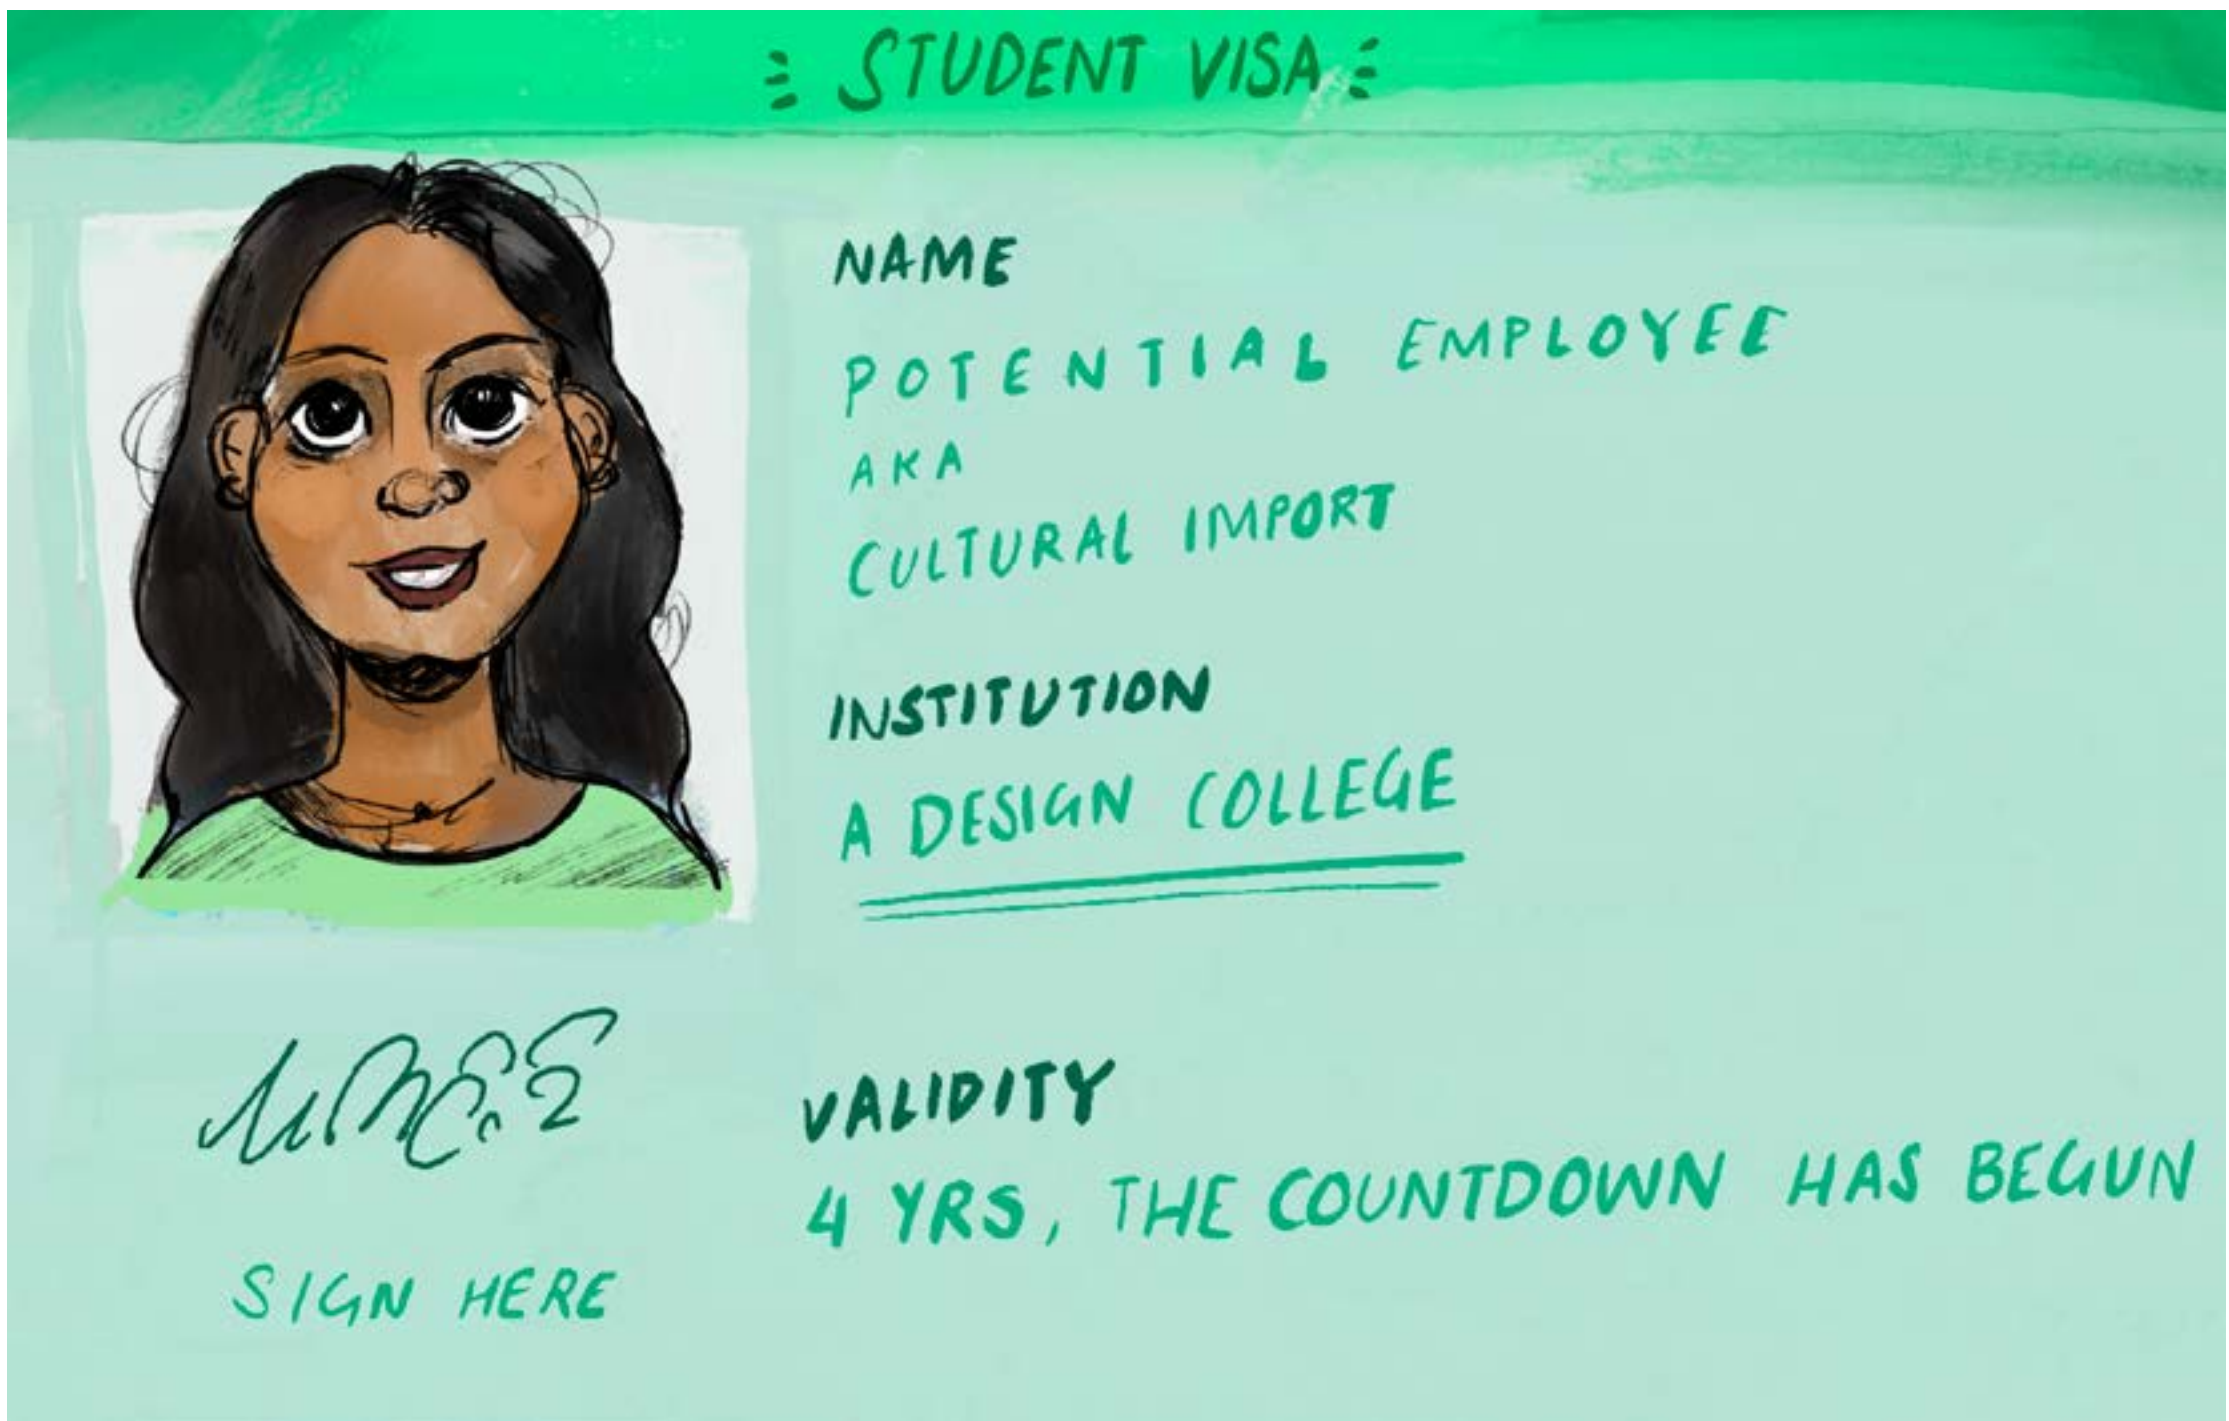 STUDENT VISA
NAME
POTENTIAL EMPLOYEE
AKA
CULTURAL IMPORT
INSTITUTION
A DESIGN COLLEGE
VALIDITY
4 YRS, THE COUNTDOWN HAS BEGUN
SIGN HERE